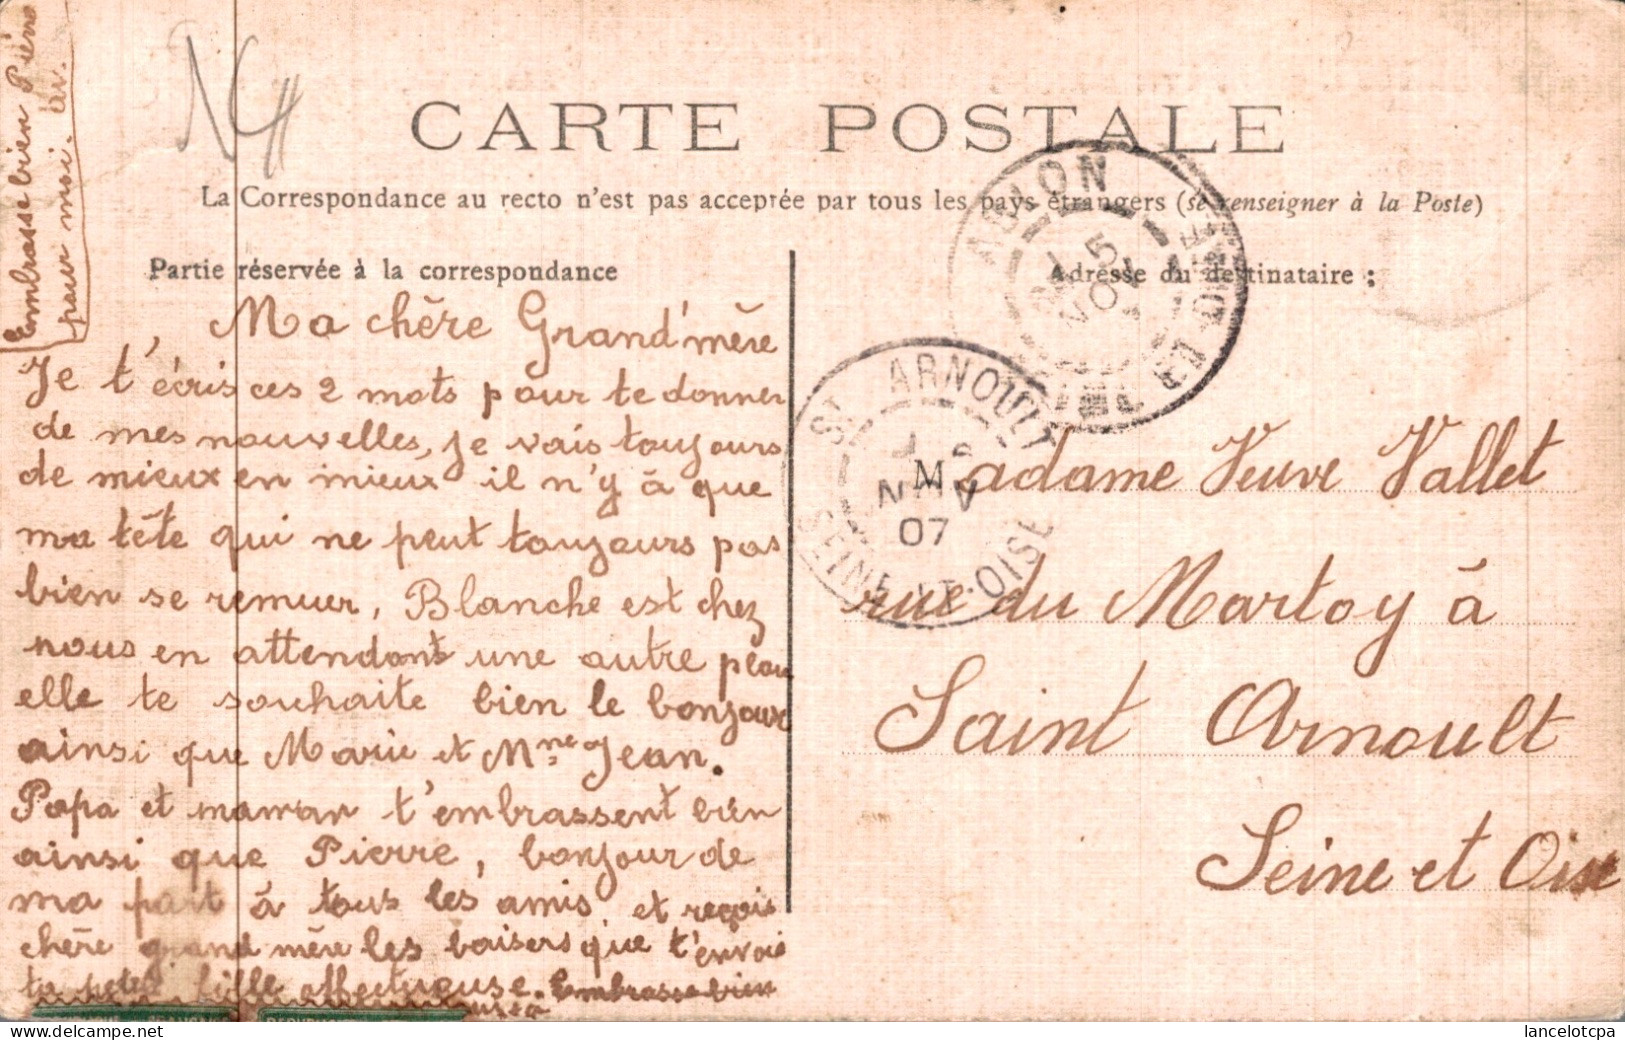 Embrasse bien Pierre
pour moi.
N4
CARTE POSTALE
La Correspondance au recto n'est pas acceptée par tous les pays étrangers (se renseigner à la Poste)
Partie réservée à la correspondance
Ma chère Grand'mère
Je t'écris ces 2 mots pour te donner
de mes nouvelles, je vais toujours
de mieux en mieux il n'y à que
ma tête qui ne peut toujours pas
bien se remuer, Blanche est chez
nous en attendant une autre
elle te souhaite bien le bonjour
ainsi que Marie et Mme Jean.
Papa et maman t'embrassent bien
ainsi que Pierre, bonjour de
ma part à tous les amis et reçois
chère grand mère les baisers que t'envoi
ta petite fille affectueuse. Embrasse bien
Adresse du destinataire :
Madame Veuve Vallet
rue du Martoy à
Saint Arnoult
Seine et Oise
ABLON
5
NOV
SEINE ET OISE
ST ARNOULT
07
SEINE-ET-OISE
lancelotcpa